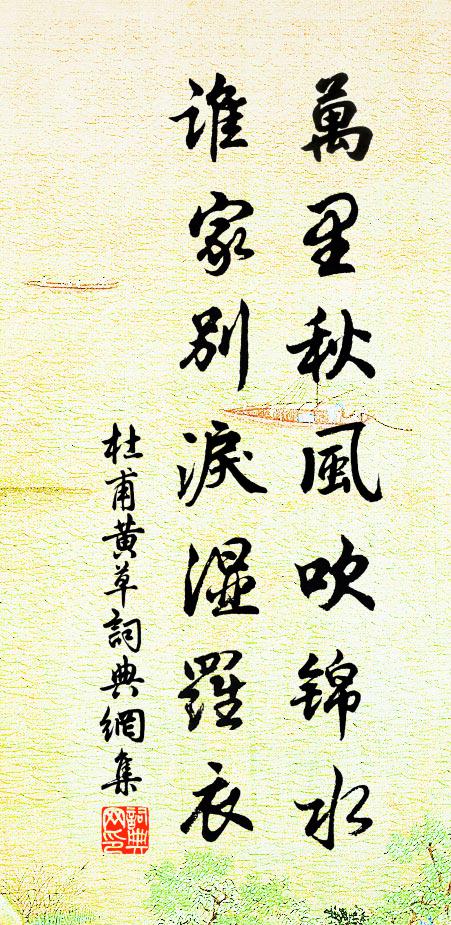 萬里秋風吹錦水
誰家別淚濕羅衣
杜甫黄草詞典網集
詞典網印